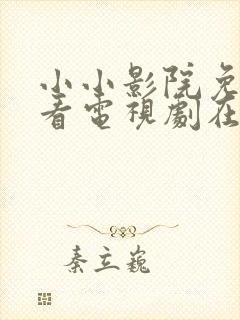 小小影院免
看電視劇在
秦立巍